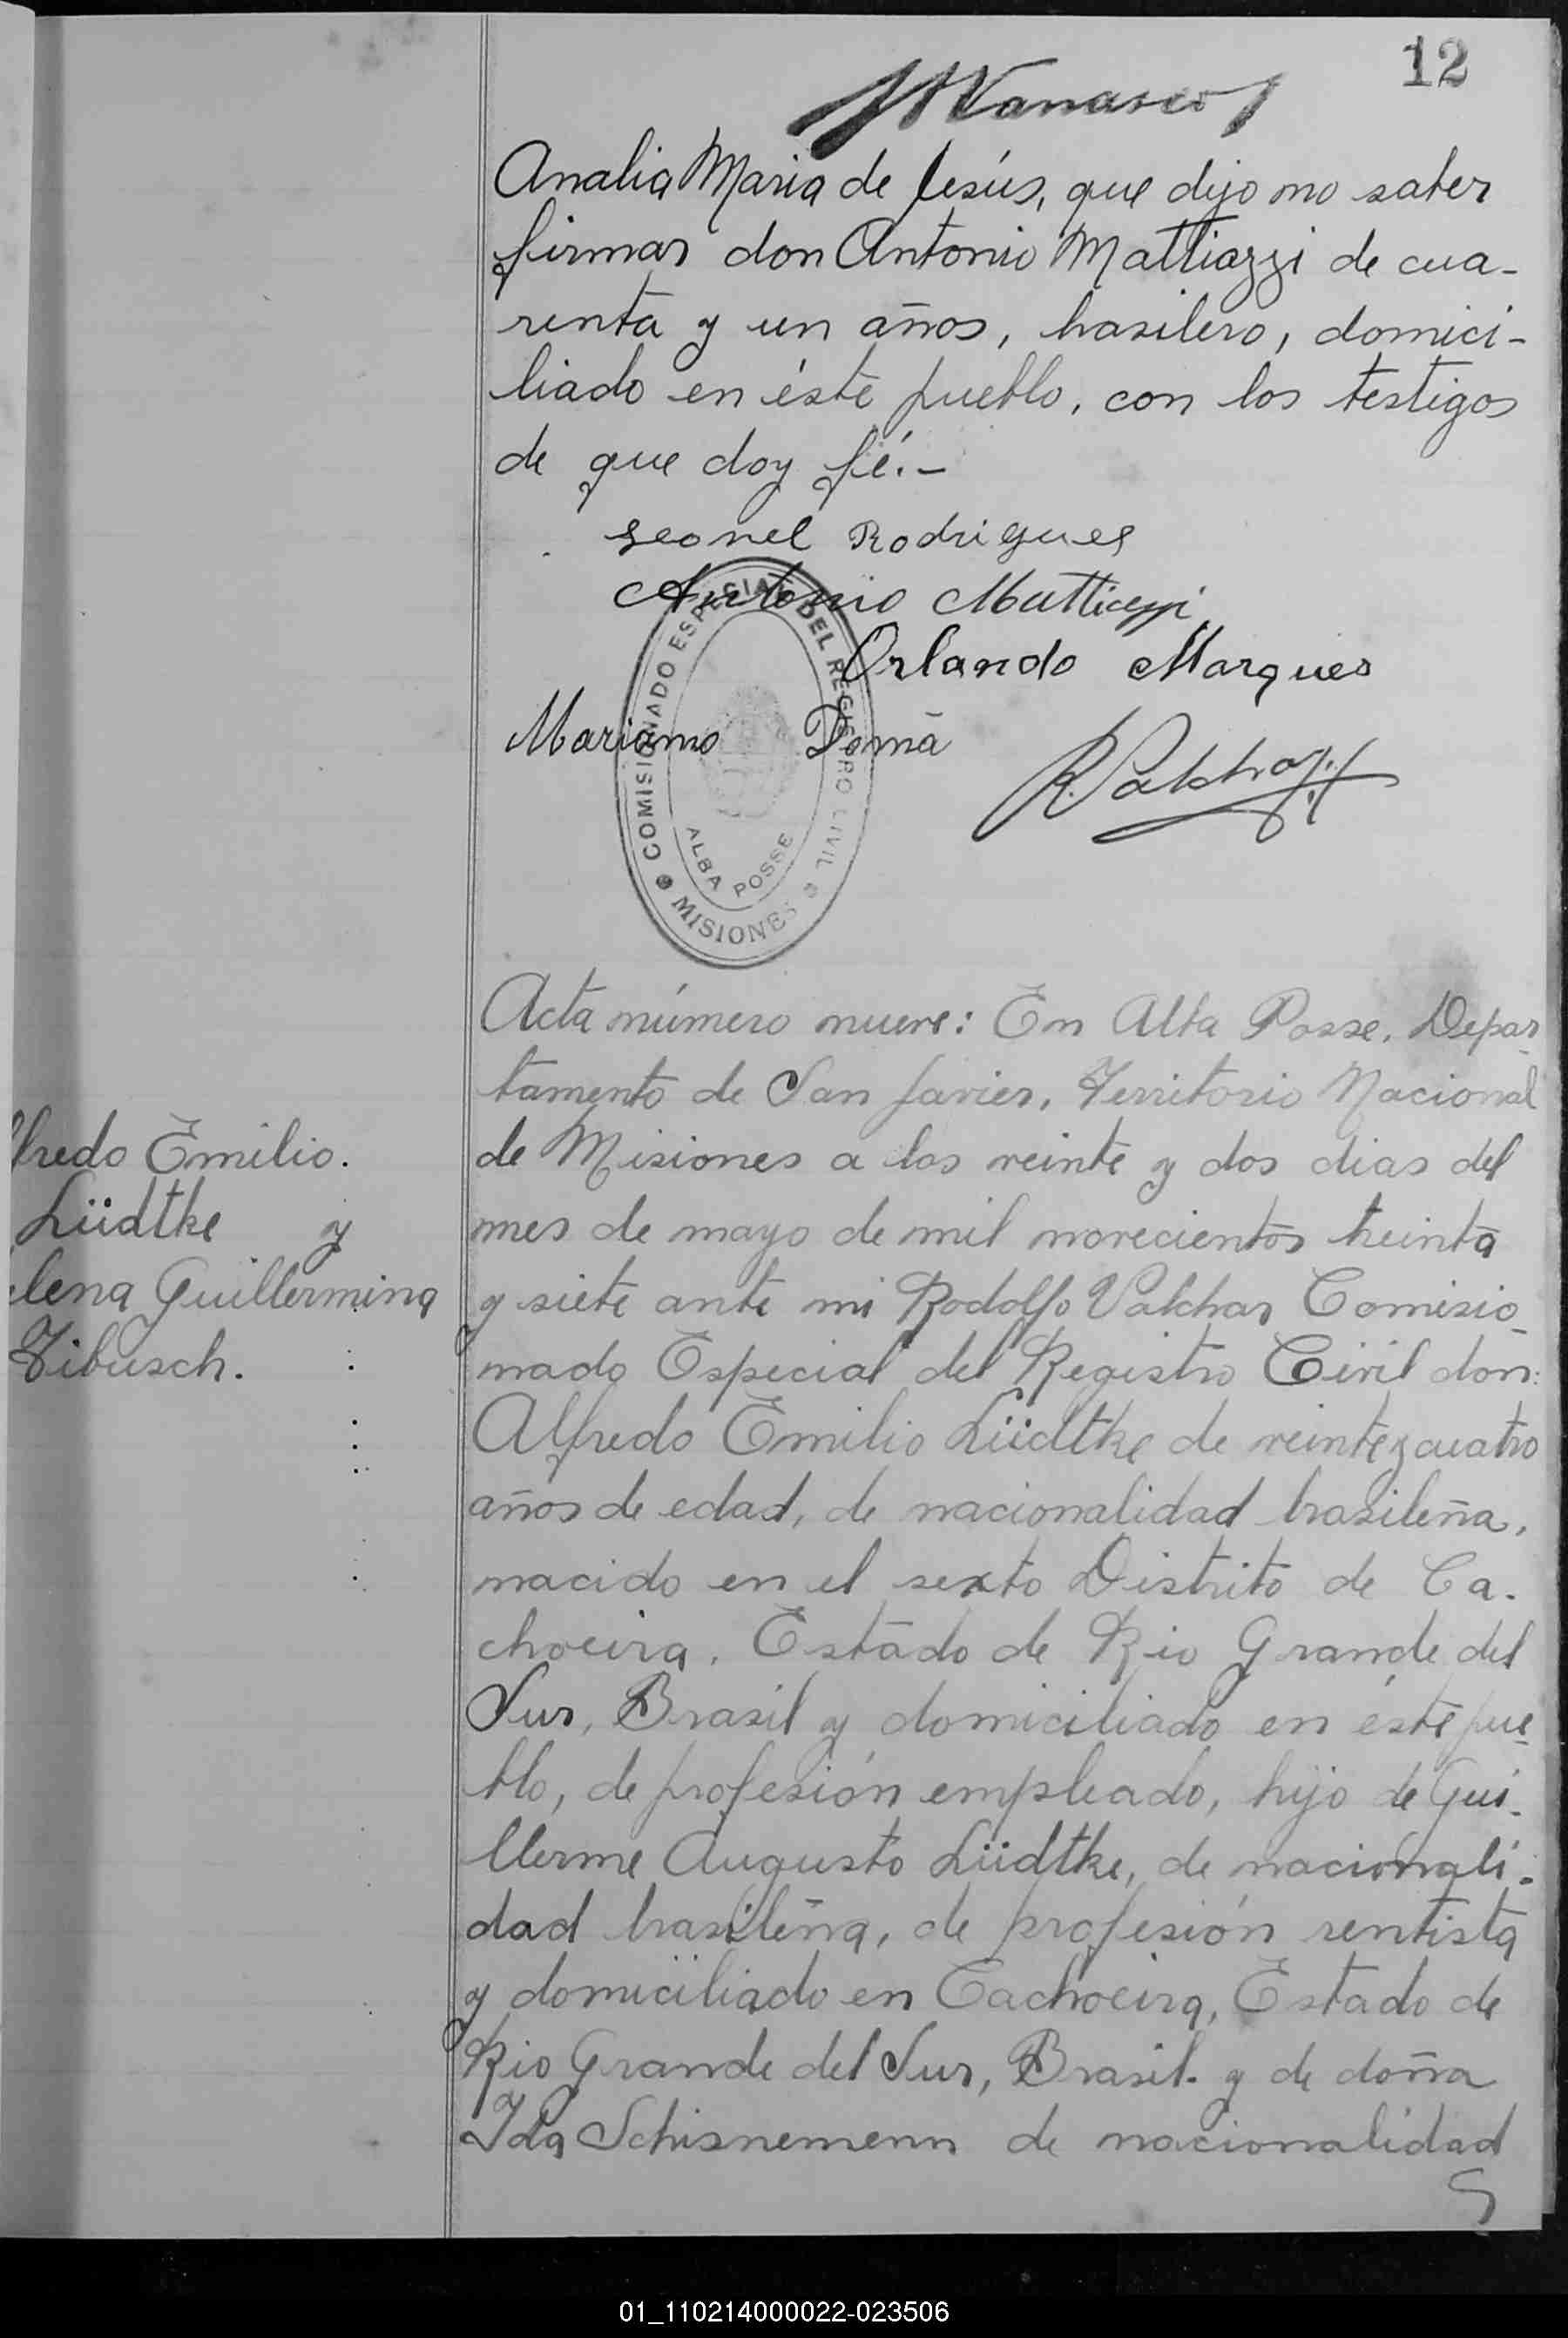 12
Analia Maria de Jesús, que dijo no saber
firmar don Antonio Mattiazzi de cua-
renta y un años, brasilero, domici-
liado en éste pueblo, con los testigos
de que doy fé.-
Leonel Rodrigues
Antonio Mattiazzi
Orlando Marques
Mariano Domá
COMISIONADO ESPECIAL DEL REGISTRO CIVIL
ALBA POSSE
MISIONES
Acta número nueve: En Alba Posse, Depar-
tamento de San Javier, Territorio Nacional
de Misiones a los veinte y dos dias del
mes de mayo de mil novecientos treinta
y siete ante mi Rodolfo Comisio-
nado Especial del Registro Civil don:
Alfredo Emilio Lüdtke de veinte y cuatro
años de edad, de nacionalidad brasileña,
nacido en el sexto Distrito de Ca-
choeira, Estado de Rio Grande del
Sur, Brasil y domiciliado en éste pue-
blo, de profesión empleado, hijo de Gui-
llerme Augusto Lüdtke, de nacionali-
dad brasileña, de profesión rentista
y domiciliado en Cachoeira, Estado de
Rio Grande del Sur, Brasil. y de doña
Ida Schisnemenn de nacionalidad
lfredo Emilio.
Lüdtke y
lena Guillermina
Tibusch.
01_110214000022-023506